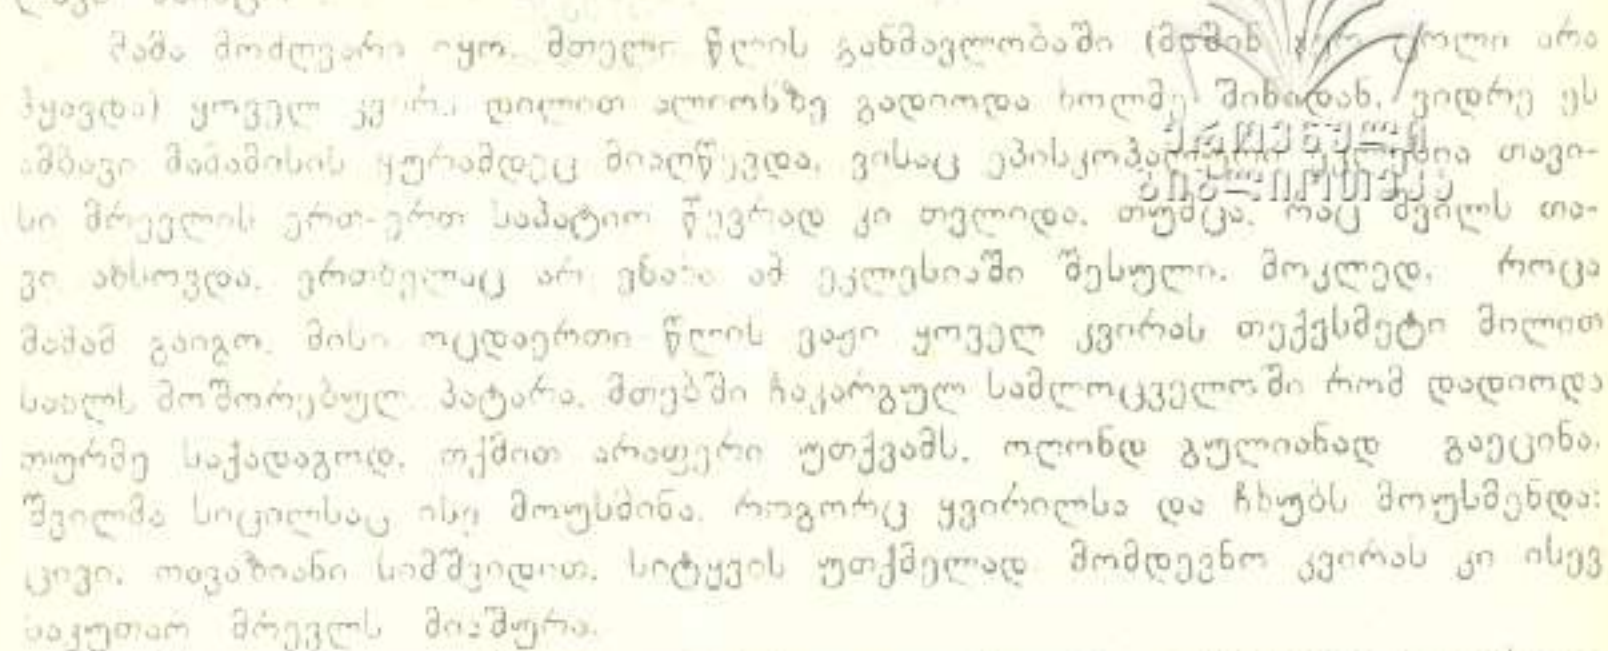 მამა მოძღვარი იყო. მთელი წლის განმავლობაში (მაშინ ჯერ ცოლი არა
ჰყავდა) ყოველ კვირა დილით ალიონზე გადიოდა ხოლმე შინიდან, ვიდრე ეს
ამბავი მამამისის ყურამდეც მიაღწევდა, ვისაც ეპისკოპალური ეკლესია თავი-
სი მრევლის ერთ-ერთ საპატიო წევრად კი თვლიდა, თუმცა, რაც შვილს თა-
ვი ახსოვდა, ერთხელაც არ ენახა ამ ეკლესიაში შესული. მოკლედ, როცა
მამამ გაიგო, მისი ოცდაერთი წლის ვაჟი ყოველ კვირას თექვსმეტი მილით
სახლს მოშორებულ პატარა, მთებში ჩაკარგულ სამლოცველოში რომ დადიოდა
თურმე საქადაგოდ, თქმით არაფერი უთქვამს, ოღონდ გულიანად გაეცინა.
შვილმა სიცილსაც ისე მოუსმინა, როგორც ყვირილსა და ჩხუბს მოუსმენდა:
ცივი, თავაზიანი სიმშვიდით, სიტყვის უთქმელად მომდევნო კვირას კი ისევ
საკუთარ მრევლს მიაშურა.
ეროვნული
ბიბლიოთეკა